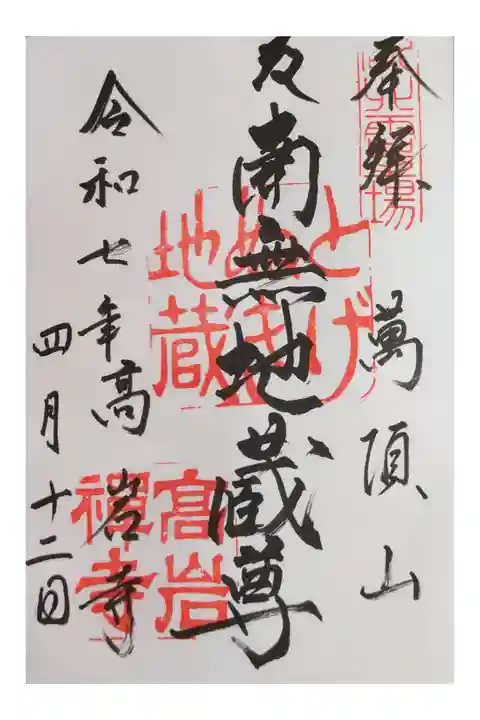 奉拝
萬頂山
南無地蔵尊
高岩寺
令和七年
四月十二日
霊場
とげぬき
地蔵
高岩
禅寺